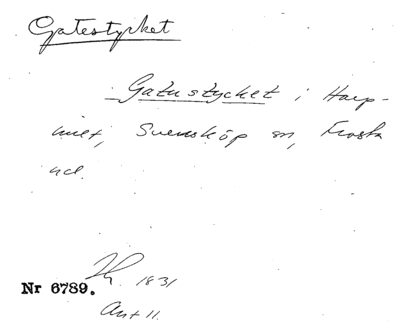 Gatestycket
Gatustycket i Harp-
Svensköp sn, Frosta
hd.
Nr 6789.
1831
Akt 11.